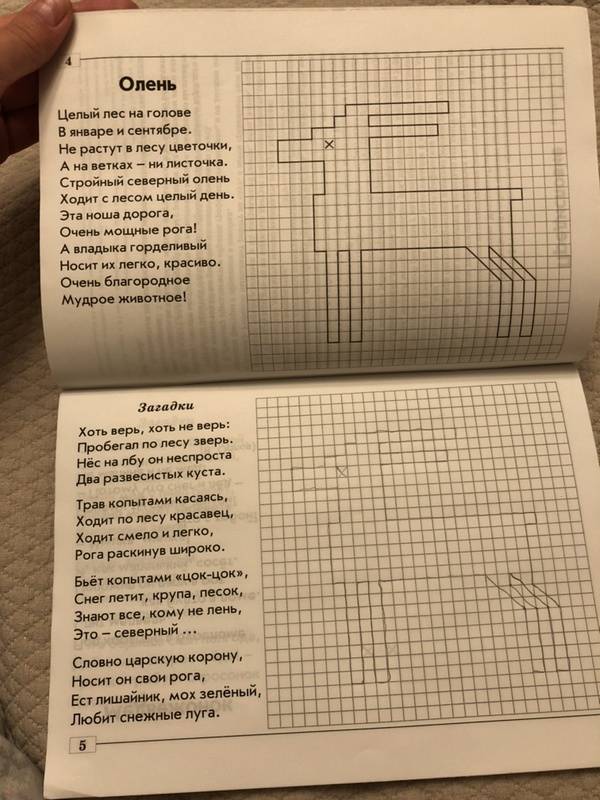 4
Олень
Целый лес на голове
В январе и сентябре.
Не растут в лесу цветочки,
А на ветках – ни листочка.
Стройный северный олень
Ходит с лесом целый день.
Эта ноша дорога,
Очень мощные рога!
А владыка горделивый
Носит их легко, красиво.
Очень благородное
Мудрое животное!
Загадки
Хоть верь, хоть не верь:
Пробегал по лесу зверь.
Нёс на лбу он неспроста
Два развесистых куста.
Трав копытами касаясь,
Ходит по лесу красавец,
Ходит смело и легко,
Рога раскинув широко.
Бьёт копытами «цок-цок»,
Снег летит, крупа, песок,
Знают все, кому не лень,
Это – северный ...
Словно царскую корону,
Носит он свои рога,
Ест лишайник, мох зелёный,
Любит снежные луга.
5